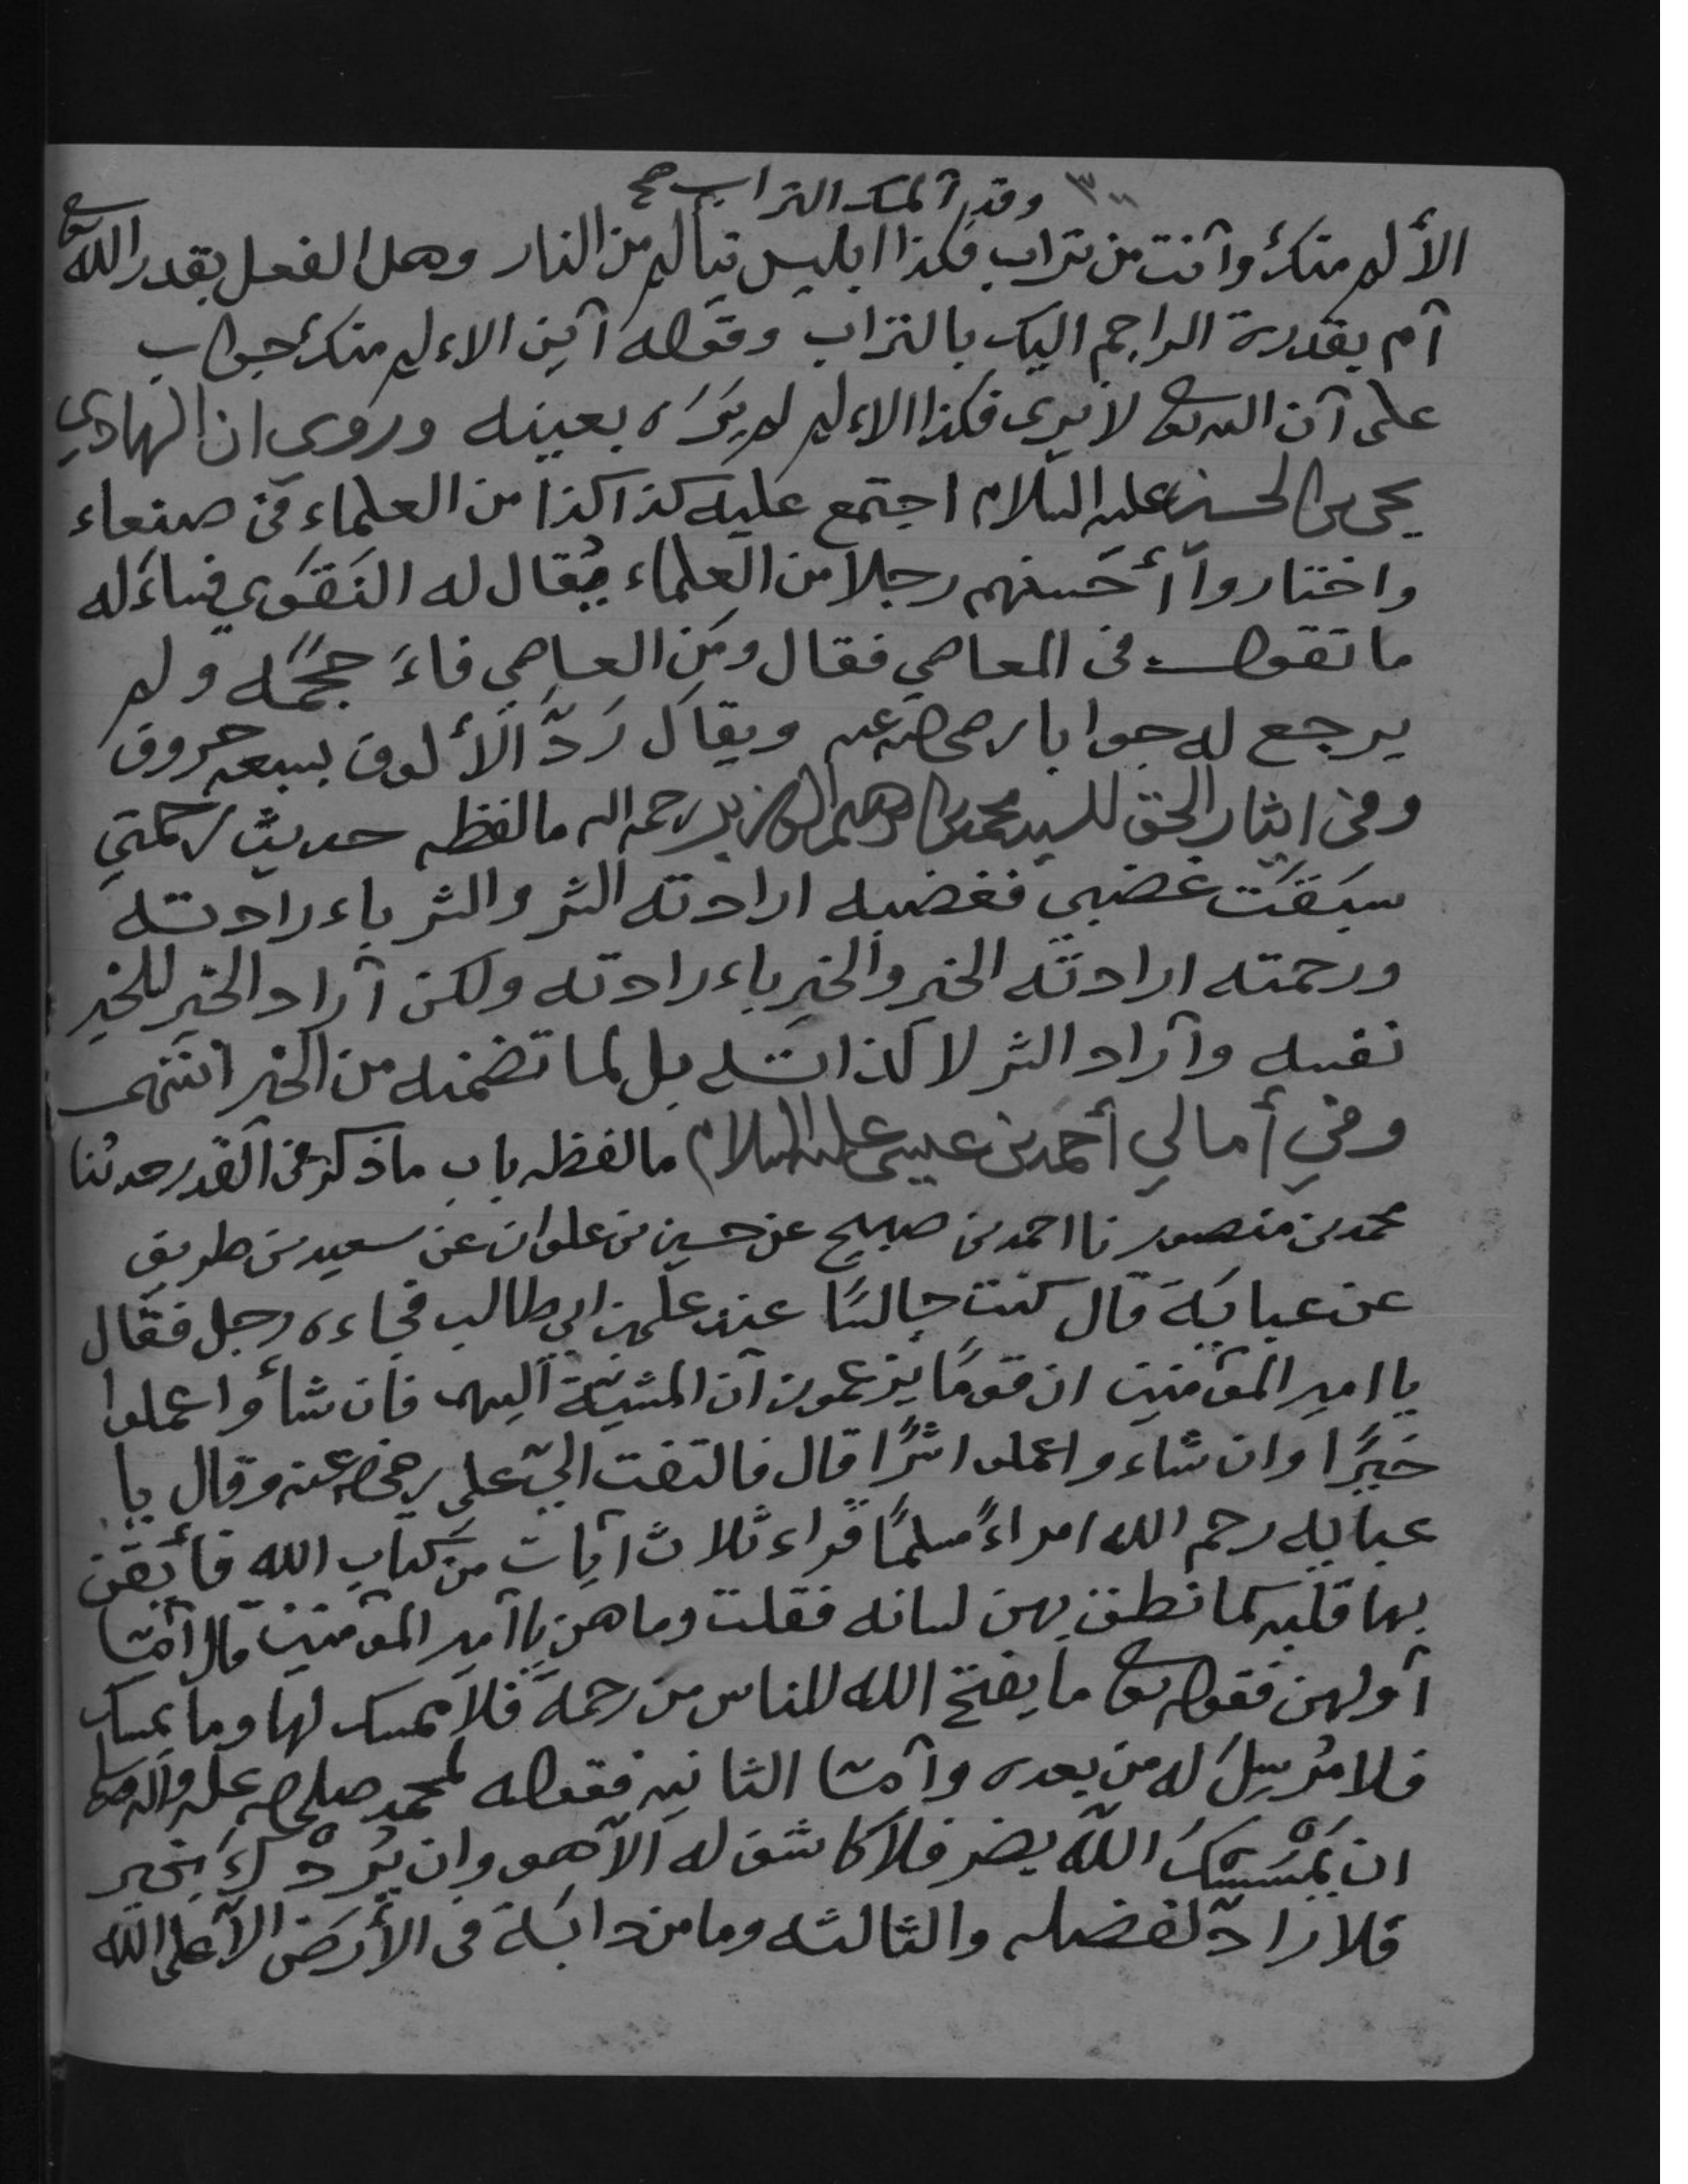 ٣٠٠ وقد آلمك التراب صح
الألم منك وآنت من تراب فكذا ابليس يتألم من النار وهل الفعل بقدر الله تعا
آم بقدرة الراجم اليك بالتراب وقوله آين الاءلم منك جواب
على آن الله تعا لا يرى فكذا الاءلم لم يَرَه بعينه وروى ان الهادي
يحيى بن الحسين عليه السلام اجتمع عليه كذا كذا من العلماء في صنعاء
واختاروا أحسنهم رجلا من العلماء يُقال له النَقَوي فساءَله
ما تقول في المعاصي فقال ومَن العاصي فاءَ حجَمَه ولم
يرجع له جوابا رضي الله عنه ويقال رَدَّ الألوف بسبعه حروف
وفي ايثار الحق للسيد محمد بن ابراهيم الوزير رحمه الله مالفظه حديث رحمتي
سبَقَت غضبي فغضبه ارادته الشر والشر باءرادته
ورحمته ارادته الخير والخير باءرادته ولكن آراد الخير للخير
نفسه وآراد الشر لا لذاته بل لما تضمنه من الخير انتهى
وفي أمالي أحمد بن عيسى عليه السلام مالفظه باب ما ذكر في القدر حدثنا
محمد بن منصور نا احمد بن صبيح عن حسين بن علوان عن سعيد بن طريف
عن عبايَة قال كنت جالسًا عند علي بن ابي طالب فجاءه رجل فقال
يا امير المؤمنين ان قومًا يزعمون آن المشيئة آليهم فان شاؤا عملوا
خيرًا وان شاءوا عملوا شرًا قال فالتفت اليّ علي رضي الله عنه وقال يا
عبايه رحم الله امراءً مسلمًا قراء ثلاث آيات من كتاب الله فأيقن
بها قلبه كما نطق بهن لسانه فقلت وما هن يا آمير المؤمنين قال آمّا
آولهن فقوله تعا ما يفتح الله للناس من رحمة فلا ممسك لها وما يمسك
فلا مُرسِلَ له من بعده وآمّا الثانيه فقوله لمحمد صلى الله عليه وآله وسلم
ان يَمْسَسْكَ اللّه بضر فلا كاشف له الّا هو وان يُرِدْكَ بخير
فلا رادّ لفضله والثالثه وما من دابَة في الأرض الّا على الله